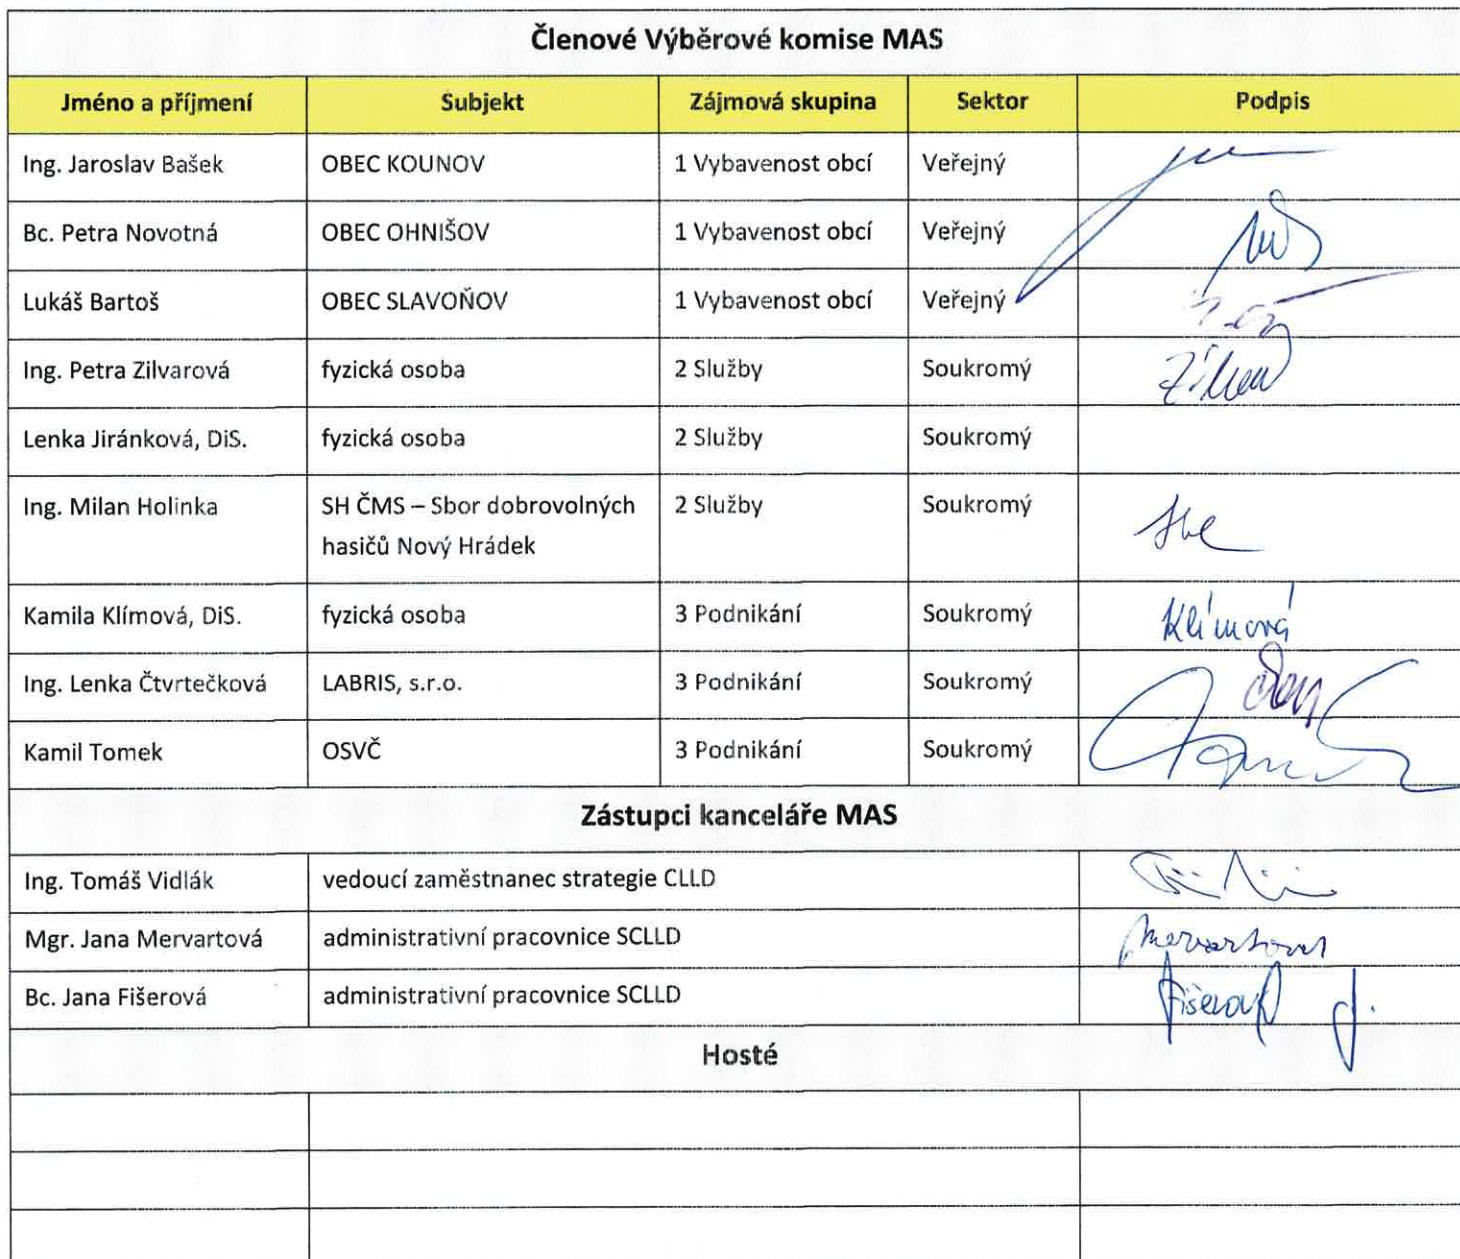 Členové Výběrové komise MAS
Jméno a příjmení Subjekt Zájmová skupina Sektor Podpis
Ing. Jaroslav Bašek OBEC KOUNOV 1 Vybavenost obcí Veřejný
Bc. Petra Novotná OBEC OHNIŠOV 1 Vybavenost obcí Veřejný
Lukáš Bartoš OBEC SLAVOŇOV 1 Vybavenost obcí Veřejný
Ing. Petra Zilvarová fyzická osoba 2 Služby Soukromý
Lenka Jiránková, DiS. fyzická osoba 2 Služby Soukromý
Ing. Milan Holinka SH ČMS – Sbor dobrovolných 2 Služby Soukromý
hasičů Nový Hrádek
Kamila Klímová, DiS. fyzická osoba 3 Podnikání Soukromý Klímová
Ing. Lenka Čtvrtečková LABRIS, s.r.o. 3 Podnikání Soukromý
Kamil Tomek OSVČ 3 Podnikání Soukromý
Zástupci kanceláře MAS
Ing. Tomáš Vidlák vedoucí zaměstnanec strategie CLLD
Mgr. Jana Mervartová administrativní pracovnice SCLLD Mervartová
Bc. Jana Fišerová administrativní pracovnice SCLLD Fišerová J.
Hosté